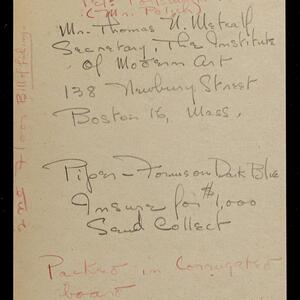 (Mr. 
Mr. Thomas N. Metcalf
Secretary, The Institute
of Modern Art
138 Newbury Street
Boston 16, Mass.
Piper – Forms on Dark Blue
Insure for $1,000
Send Collect
Packed in Corrugated
board